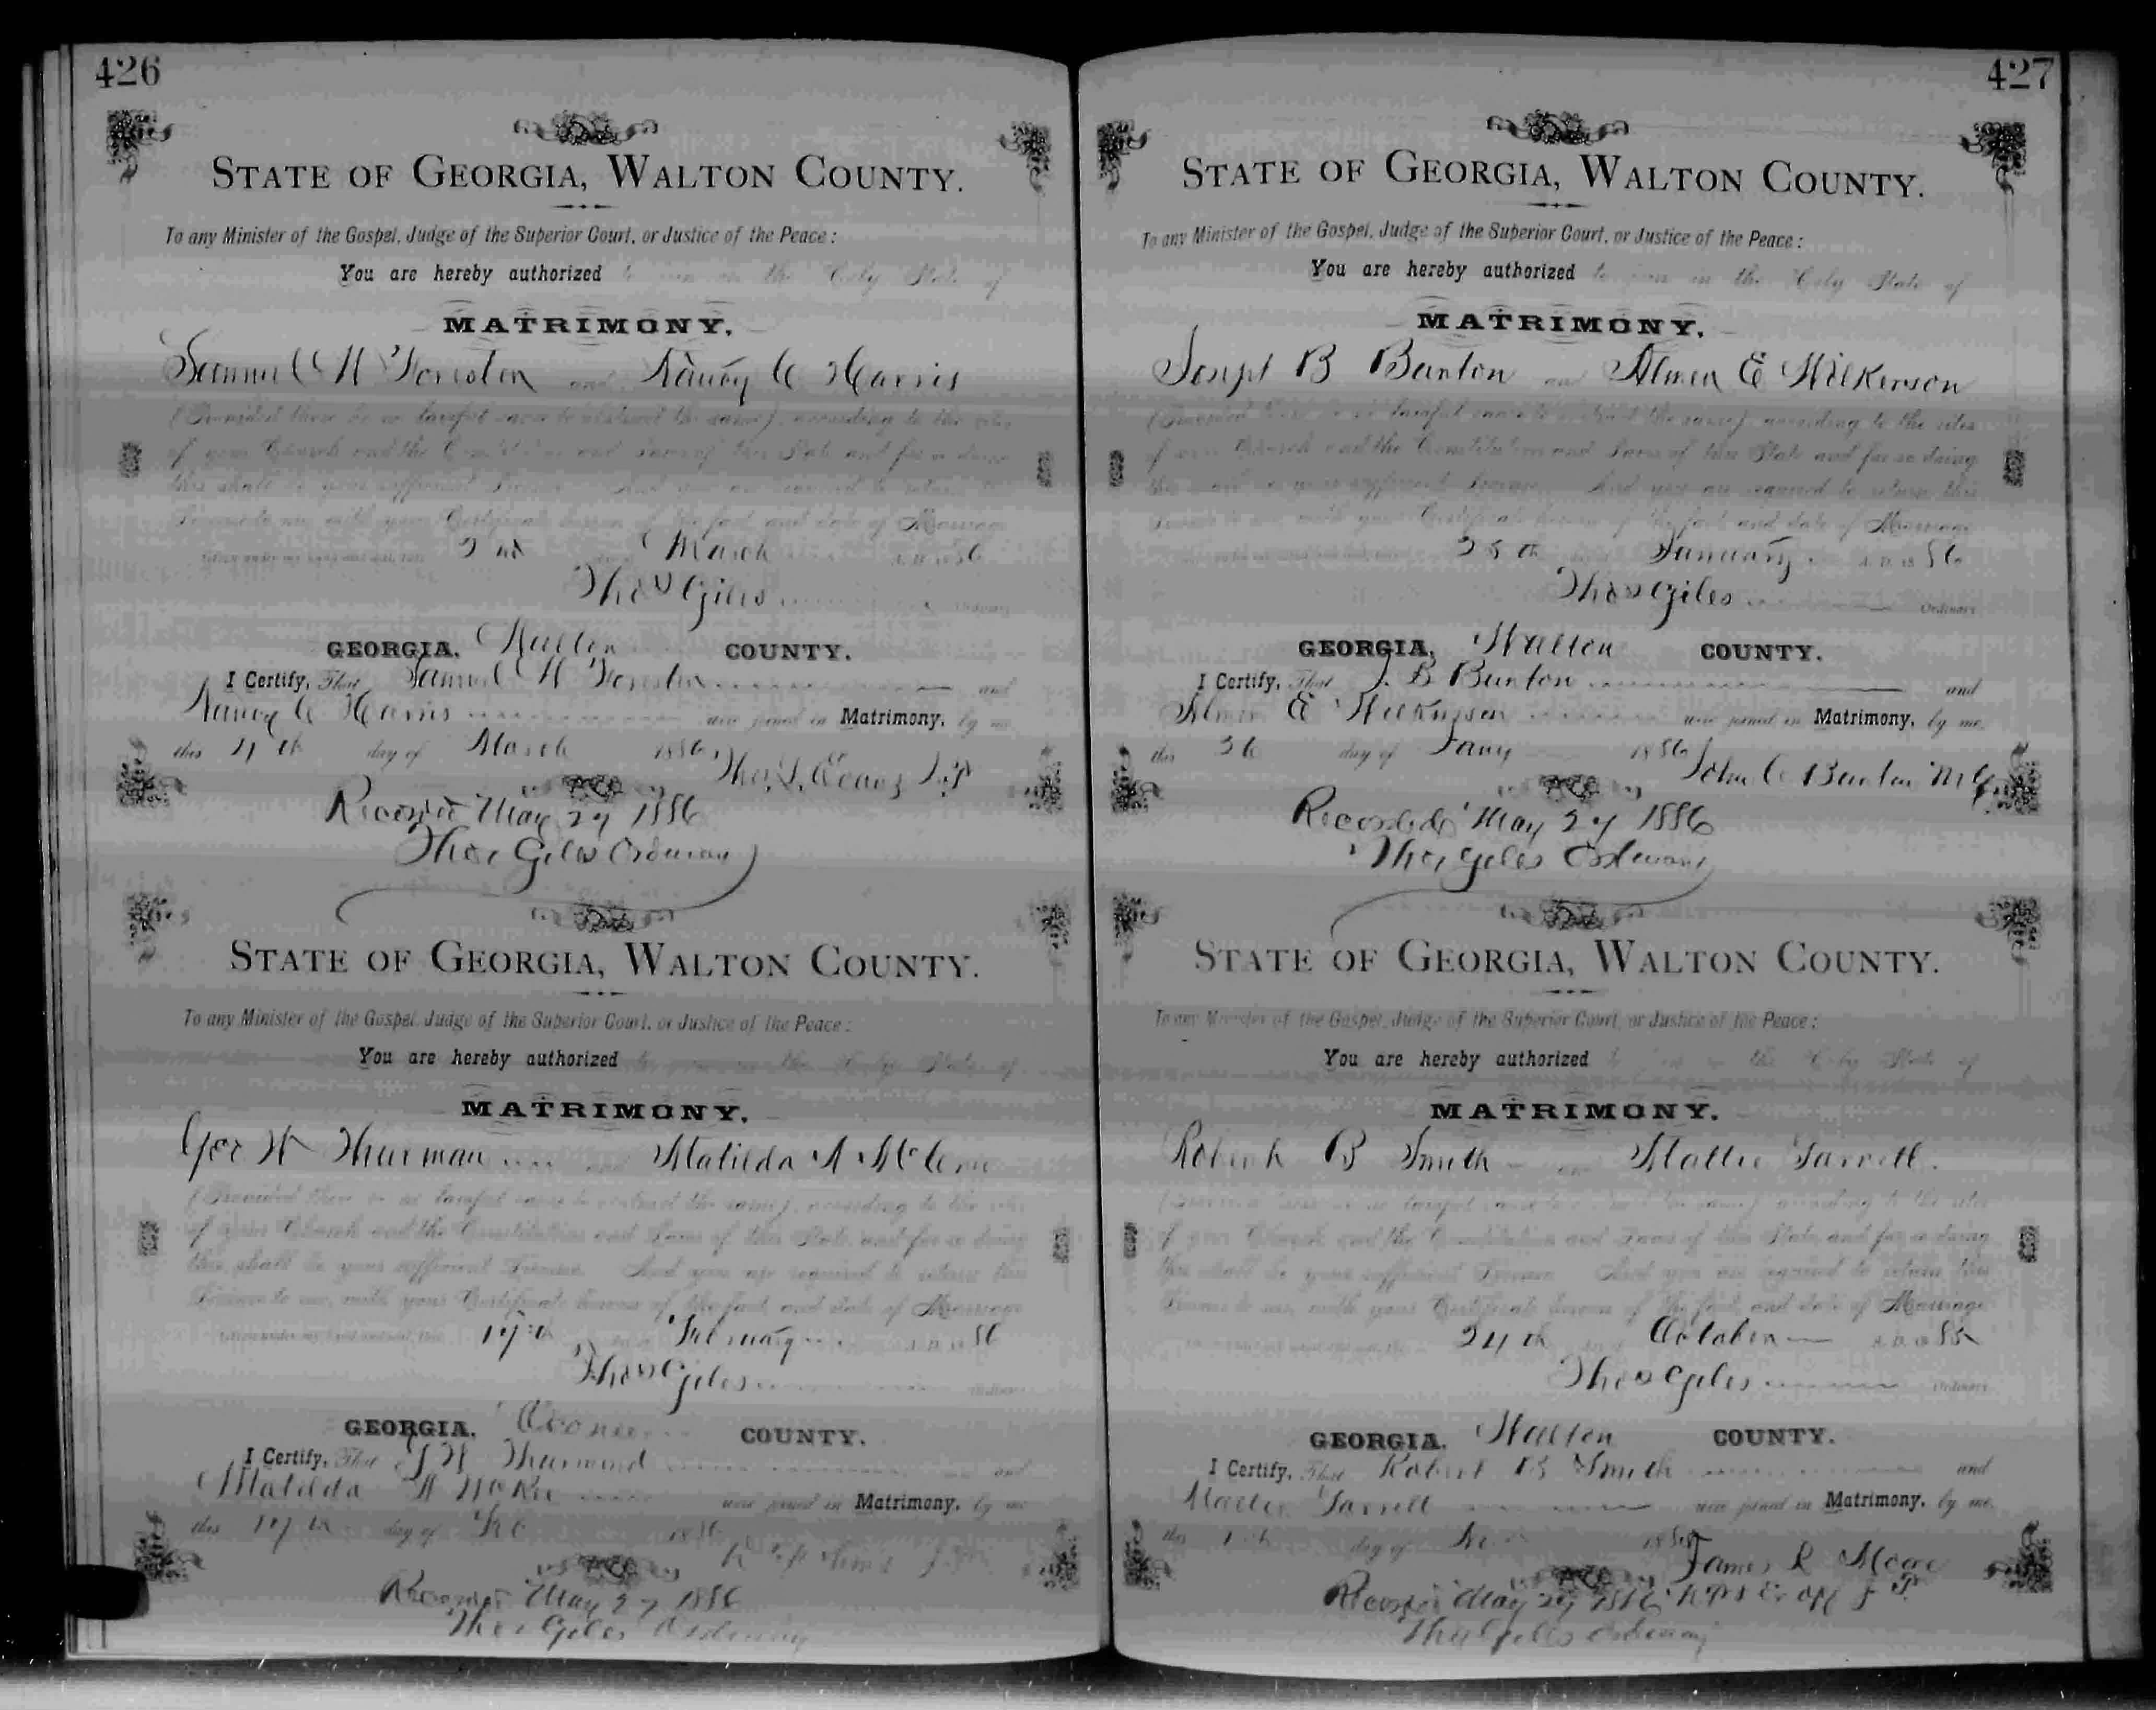 426
STATE OF GEORGIA, WALTON COUNTY.
To any Minister of the Gospel, Judge of the Superior Court, or Justice of the Peace:
You are hereby authorized to join in the Holy State of
MATRIMONY,
Samuel H and Nancy C Harris
(Provided there be no lawful cause to obstruct the same) according to the rites
of your Church and the Constitution and Laws of this State and for so doing
this shall be your sufficient License. And you are required to return this
License to me with your Certificate hereon of the fact and date of Marriage
2nd March 86
Thos Giles
GEORGIA, Walton COUNTY.
I Certify, That Samuel H and
Nancy C Harris were joined in Matrimony, by me
this day of March 1886
Recorded May 27 1886
Thos Giles Ordinary
STATE OF GEORGIA, WALTON COUNTY.
To any Minister of the Gospel, Judge of the Superior Court, or Justice of the Peace:
You are hereby authorized to join in the Holy State of
MATRIMONY,
Geo W Thurman Matilda A
(Provided there be no lawful cause to obstruct the same) according to the rites
of your Church and the Constitution and Laws of this State and for so doing
this shall be your sufficient License. And you are required to return this
License to me with your Certificate hereon of the fact and date of Marriage
17th February 86
Thos Giles
GEORGIA, Oconee COUNTY.
I Certify, That G W Thurmond and
Matilda A McKee were joined in Matrimony, by me
this 17th day of 1886
Recorded May 27 1886
Thos Giles Ordinary
427
STATE OF GEORGIA, WALTON COUNTY.
To any Minister of the Gospel, Judge of the Superior Court, or Justice of the Peace:
You are hereby authorized to join in the Holy State of
MATRIMONY,
B Bunton and Almea E Wilkerson
(Provided there be no lawful cause to obstruct the same) according to the rites
of your Church and the Constitution and Laws of this State and for so doing
this shall be your sufficient License. And you are required to return this
License to me with your Certificate hereon of the fact and date of Marriage
25th January A.D. 1886
Thos Giles Ordinary
GEORGIA, Walton COUNTY.
I Certify, That J. B Bunton and
E Wilkerson were joined in Matrimony, by me
this 26 day of Jany 1886 John C Bunton M G
Recorded May 27 1886
Thos Giles Ordinary
STATE OF GEORGIA, WALTON COUNTY.
To any Minister of the Gospel, Judge of the Superior Court, or Justice of the Peace:
You are hereby authorized to join in the Holy State of
MATRIMONY,
Robert B Smith Mattie Garrett.
(Provided there be no lawful cause to obstruct the same) according to the rites
of your Church and the Constitution and Laws of this State and for so doing
this shall be your sufficient License. And you are required to return this
License to me with your Certificate hereon of the fact and date of Marriage
24th October 85
Thos Giles Ordinary
GEORGIA, Walton COUNTY.
I Certify, That Robert B Smith and
Mattie Garrett were joined in Matrimony, by me.
this day of James R
Recorded May 27 1886 Ex off J P
Thos Giles Ordinary